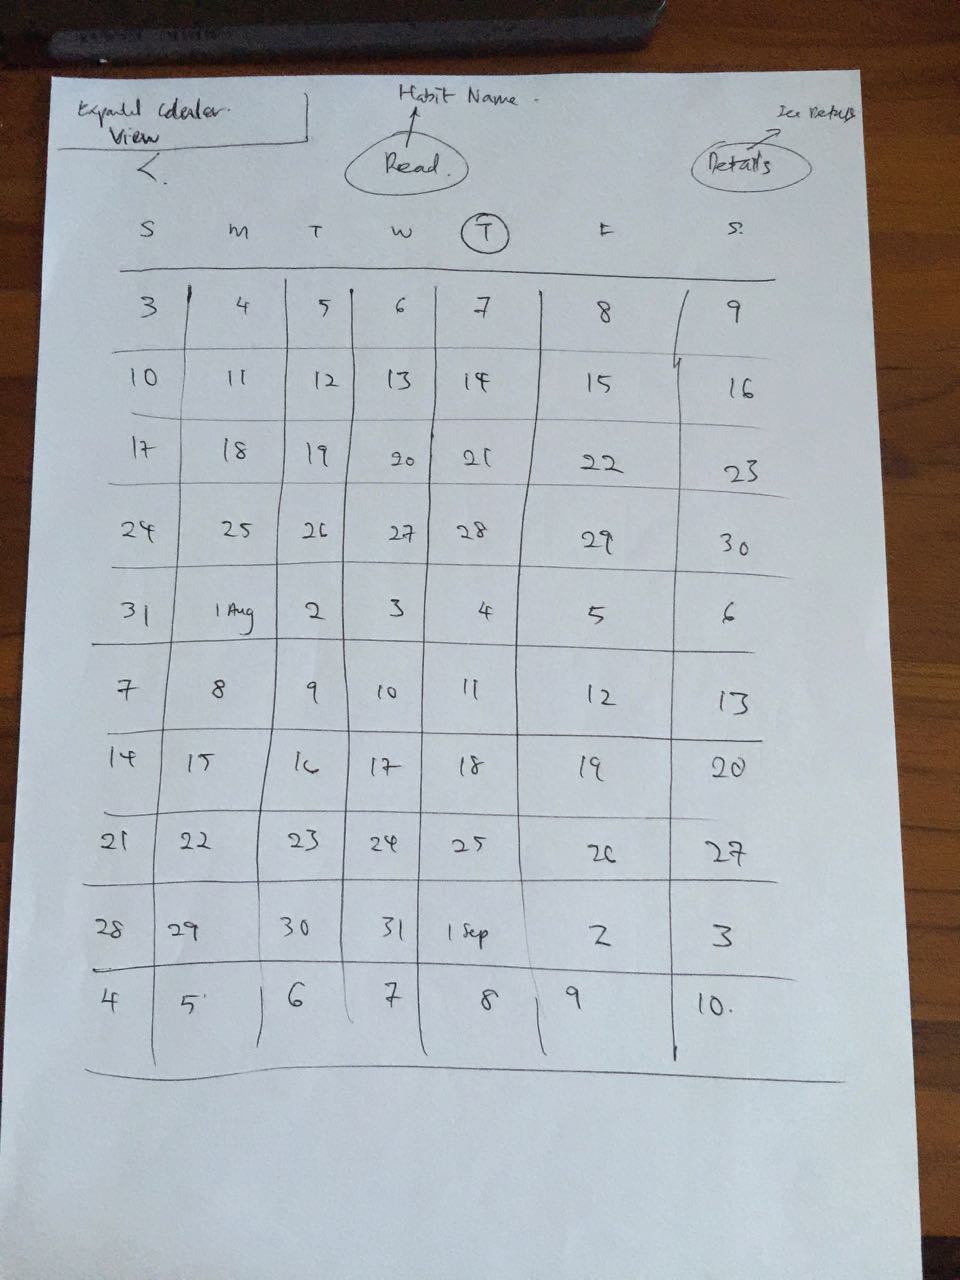 Habit Name.
View
See Details
<
Read.
Details
S M T W T F S
3 4 5 6 7 8 9
10 11 12 13 14 15 16
17 18 19 20 21 22 23
24 25 26 27 28 29 30
31 1 Aug 2 3 4 5 6
7 8 9 10 11 12 13
14 15 16 17 18 19 20
21 22 23 24 25 26 27
28 29 30 31 1 Sep 2 3
4 5 6 7 8 9 10.